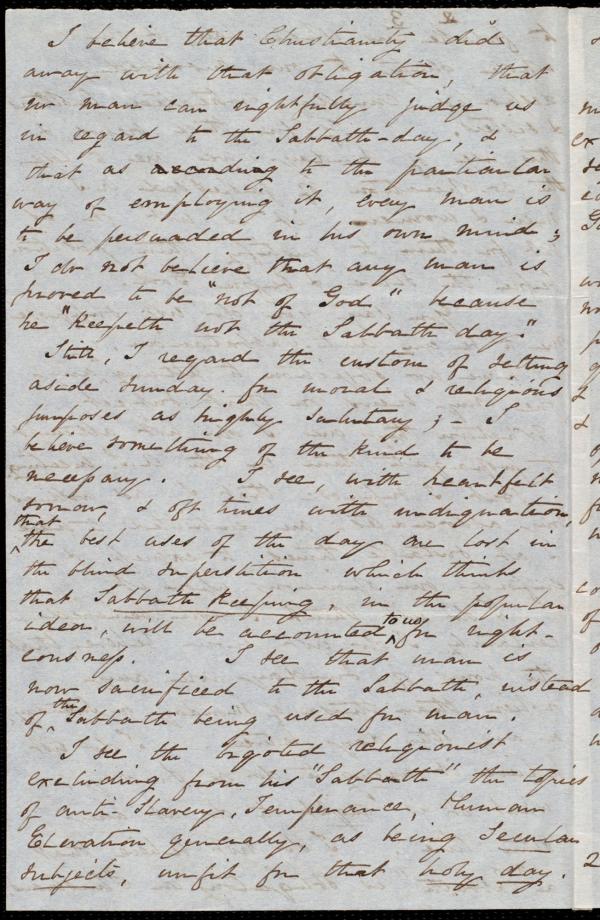 I believe that Christianity did
away with that obligation, that
no man can rightfully judge us
in regard to the Sabbath-day, &
that as according to the particular
way of employing it, every man is
to be persuaded in his own mind;
I do not believe that any man is
proved to be "not of God" because
he "keepeth not the Sabbath day."
Still, I regard the custom of setting
aside Sunday for moral & religious
purposes as highly salutary; - I
believe something of the kind to be
necessary. I see, with heartfelt
sorrow, & oft times with indignation,
that
the best uses of the day are lost in
the blind superstition which thinks
that Sabbath keeping, in the popular
idea, will be accounted to us for right-
eousness. I see that man is
now sacrificed to the Sabbath, instead
of the Sabbath being used for man.
I see the bigoted religionist
excluding from his "Sabbath" the topics
of anti-Slavery, Temperance, Human
Elevation generally, as being Secular
subjects, unfit for that holy day.